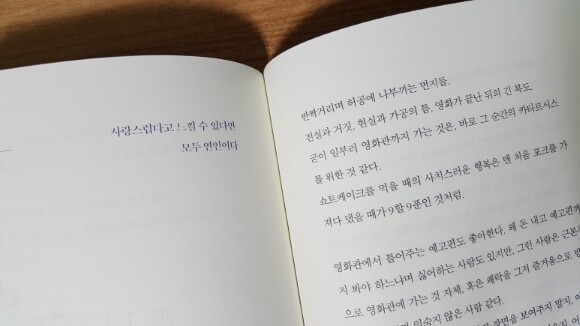 사랑스럽다고 느낄 수 있다면
모두 연인이다
반짝거리며 허공에 나부끼는 먼지들.
진실과 거짓, 현실과 가공의 틈. 영화가 끝난 뒤의 긴 복도
굳이 일부러 영화관까지 가는 것은, 바로 그 순간의 카타르시스
를 위한 것 같다.
쇼트케이크를 먹을 때의 사치스러운 행복은 맨 처음 포크를 가
져다 댔을 때가 9할 9푼인 것처럼.
영화관에서 틀어주는 예고편도 좋아한다. 왜 돈 내고 예고편까
지 봐야 하느냐며 싫어하는 사람도 있지만, 그런 사람은 근본
으로 영화관에 가는 것 자체, 혹은 쾌락을 그저 즐거움으로 받
익숙지 않은 사람 같다.
장면을 보여주지 말지,